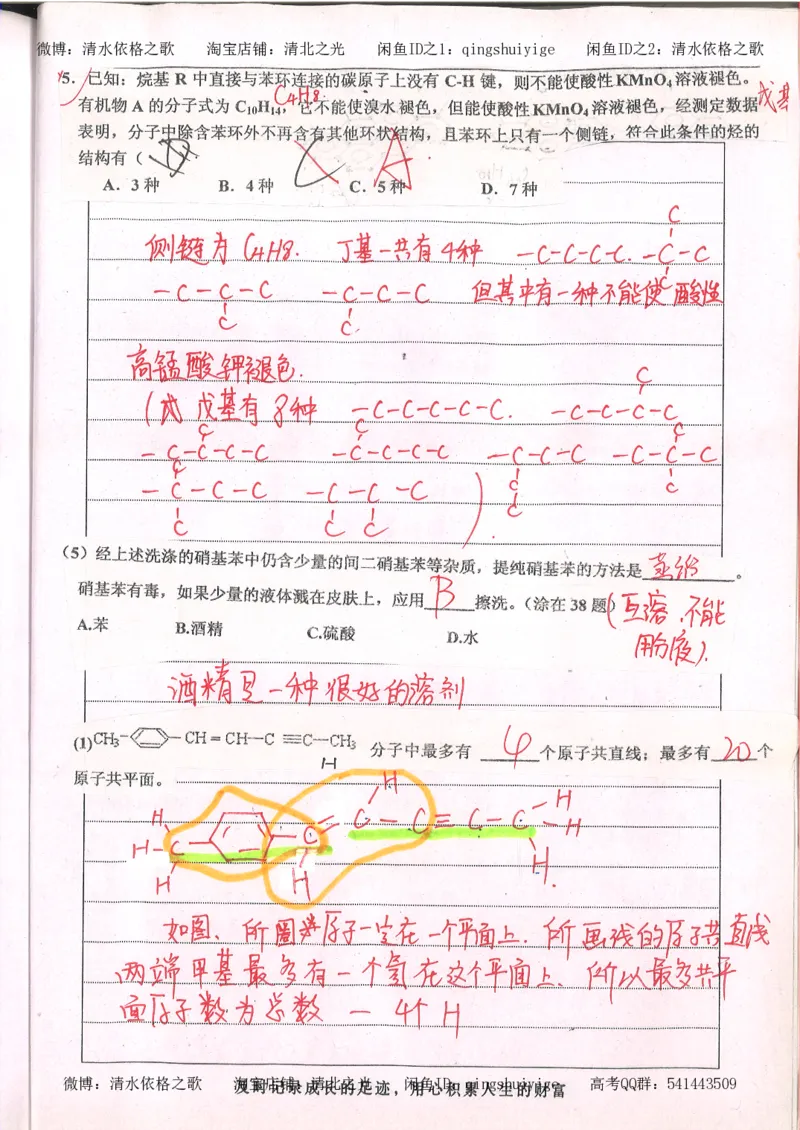 微博：清水依格之歌 淘宝店铺：清北之光 闲鱼ID之1：qingshuiyige 闲鱼ID之2：清水依格之歌
5. 已知：烷基 R 中直接与苯环连接的碳原子上没有 C-H 键，则不能使酸性KMnO₄溶液褪色。
C₄H₈ 戊基
有机物 A 的分子式为 C₁₀H₁₄，它不能使溴水褪色，但能使酸性KMnO₄溶液褪色，经测定数据
表明，分子中除含苯环外不再含有其他环状结构，且苯环上只有一个侧链，符合此条件的烃的
结构有（ A
A．3种 B．4种 C．5种 D．7种
侧链为C₄H8. 丁基一共有4种 -C-C-C-C. -C-C-C
-C-C-C -C-C-C 但其中有一种不能使酸性
高锰酸钾褪色.
戊基有8种 -C-C-C-C-C. -C-C-C-C
-C-C-C-C -C-C-C-C -C-C-C -C-C-C-C
-C-C-C -C-C-C )
（5）经上述洗涤的硝基苯中仍含少量的间二硝基苯等杂质，提纯硝基苯的方法是 蒸馏 。
硝基苯有毒，如果少量的液体溅在皮肤上，应用 B 擦洗。（涂在38题）(互溶.不能
用分液).
A.苯 B.酒精 C.硫酸 D.水
酒精是一种很好的溶剂
(1)CH₃- -CH=CH-C≡C-CH₃ 分子中最多有 4 个原子共直线；最多有 20 个
原子共平面。
H
H H
H-C C = C - C ≡ C - C - H
H H H
如图、所圈 原子一定在一个平面上. 所画线的原子共直线
两端甲基最多有一个氢在这个平面上. 所以最多共平
面原子数为总数 - 4个H
微博：清水依格之歌 淘宝店铺：清北之光 闲鱼ID：qingshuiyige 高考QQ群：541443509
及时记录成长的足迹，用心积累人生的财富